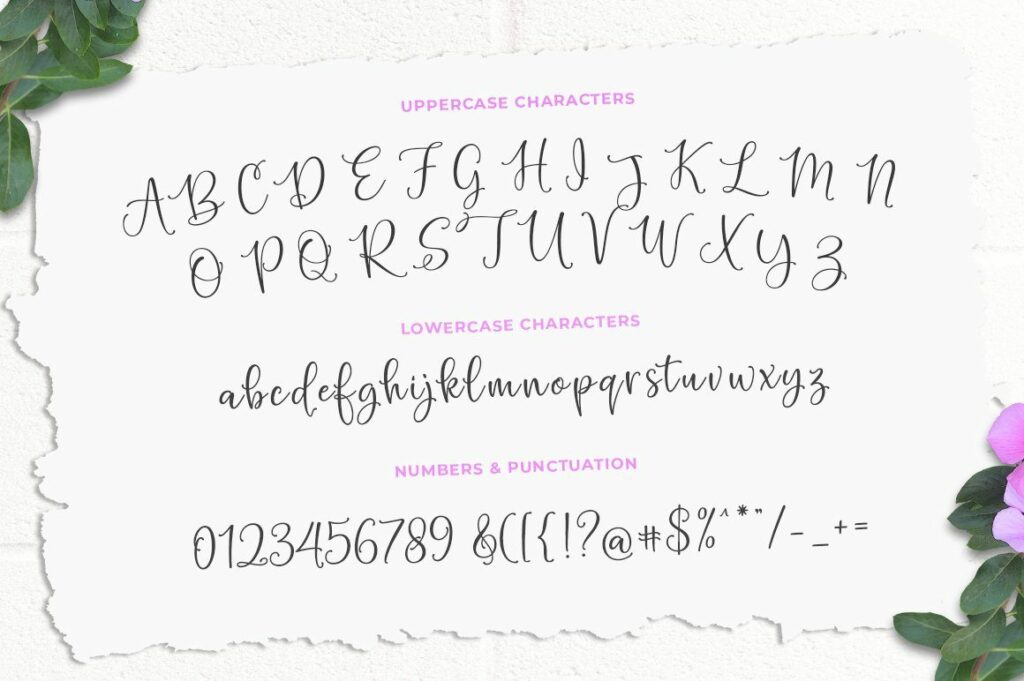 UPPERCASE CHARACTERS
A B C D E F G H I J K L M N
O P Q R S T U V W X Y Z
LOWERCASE CHARACTERS
abcdefghijklmnopqrstuvwxyz
NUMBERS & PUNCTUATION
0123456789 &([{!?@#$%^*"/-_+=